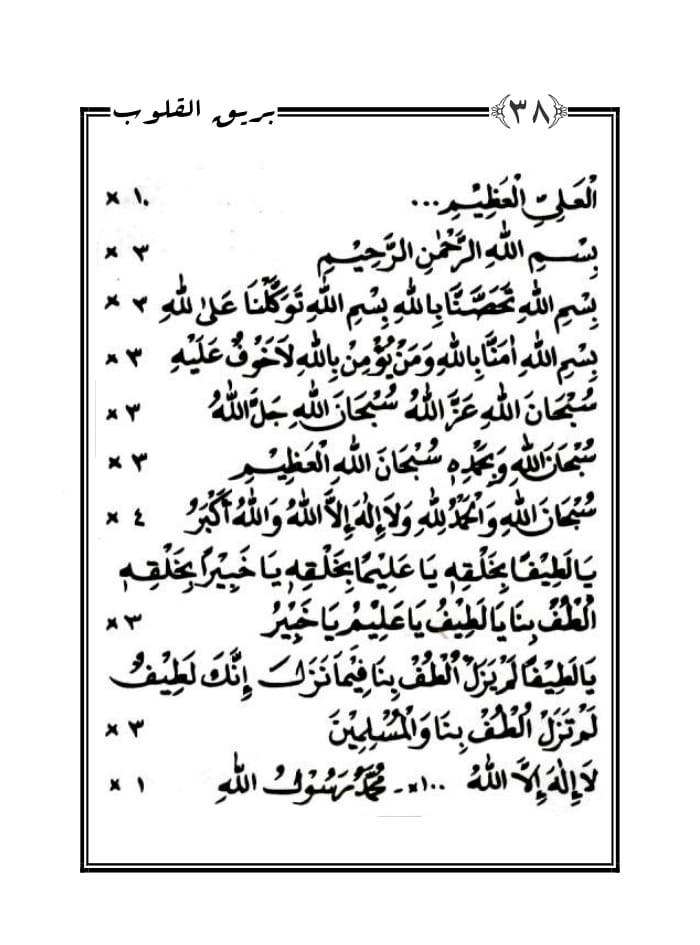 بريق القلوب ﴿٣٨﴾
الْعَلِيِّ الْعَظِيْمِ... ١٠ ×
بِسْمِ اللهِ الرَّحْمٰنِ الرَّحِيْمِ ٣ ×
بِسْمِ اللهِ تَحَصَّنَّا بِاللهِ بِسْمِ اللهِ تَوَكَّلْنَا عَلٰى للهِ ٣ ×
بِسْمِ اللهِ اٰمَنَّا بِاللهِ وَمَنْ يُؤْمِنْ بِاللهِ لَاخَوْفٌ عَلَيْهِ ٣ ×
سُبْحَانَ اللهِ عَزَّ اللهُ سُبْحَانَ اللهِ جَلَّ اللهُ ٣ ×
سُبْحَانَ اللهِ وَبِحَمْدِهِ سُبْحَانَ اللهِ الْعَظِيْمِ ٣ ×
سُبْحَانَ اللهِ وَالْحَمْدُ لِلهِ وَلَا إِلٰهَ إِلَّا اللهُ وَاللهُ أَكْبَرُ ٤ ×
يَا لَطِيْفًا بِخَلْقِهِ يَا عَلِيْمًا بِخَلْقِهِ يَا خَبِيْرًا بِخَلْقِهِ
اُلْطُفْ بِنَا يَا لَطِيْفُ يَا عَلِيْمُ يَا خَبِيْرُ ٣ ×
يَا لَطِيْفًا لَمْ يَزَلْ اُلْطُفْ بِنَا فِيْمَا نَزَلَ إِنَّكَ لَطِيْفٌ
لَمْ تَزَلْ اُلْطُفْ بِنَا وَالْمُسْلِمِيْنَ ٣ ×
لَا إِلٰهَ إِلَّا اللهُ ١٠٠× - مُحَمَّدٌ رَسُوْلُ اللهِ ١ ×